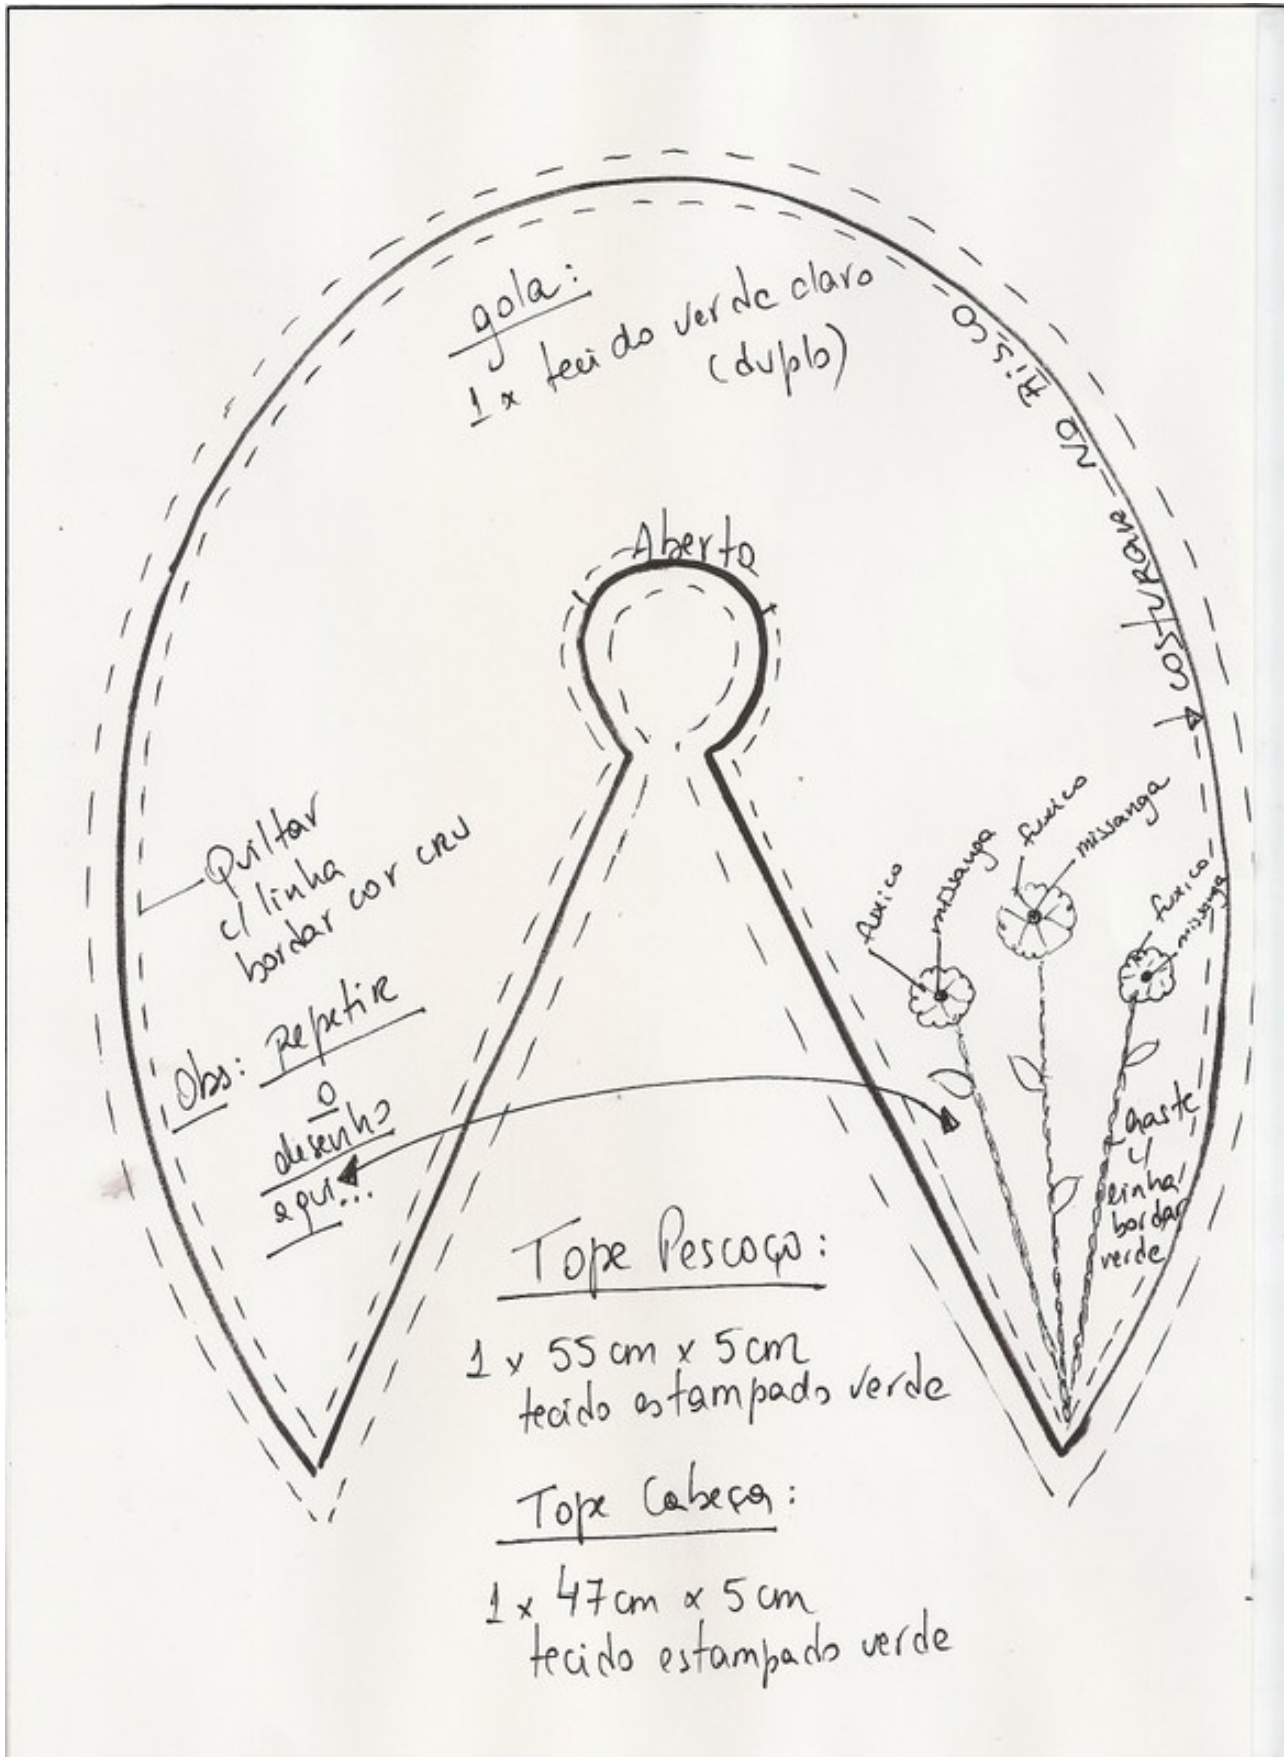 gola:
1 x tecido verde claro
(duplo)
COSTURAR NO RISCO
Aberto
Quiltar
c/ linha
bordar cor cru
Obs: Repetir
o
desenho
aqui...
fuxico
missanga
fuxico
missanga
fuxico
missanga
haste
c/
linha
bordar
verde
Tope Pescoço:
1 x 55 cm x 5 cm
tecido estampado verde
Tope Cabeça:
1 x 47 cm x 5 cm
tecido estampado verde